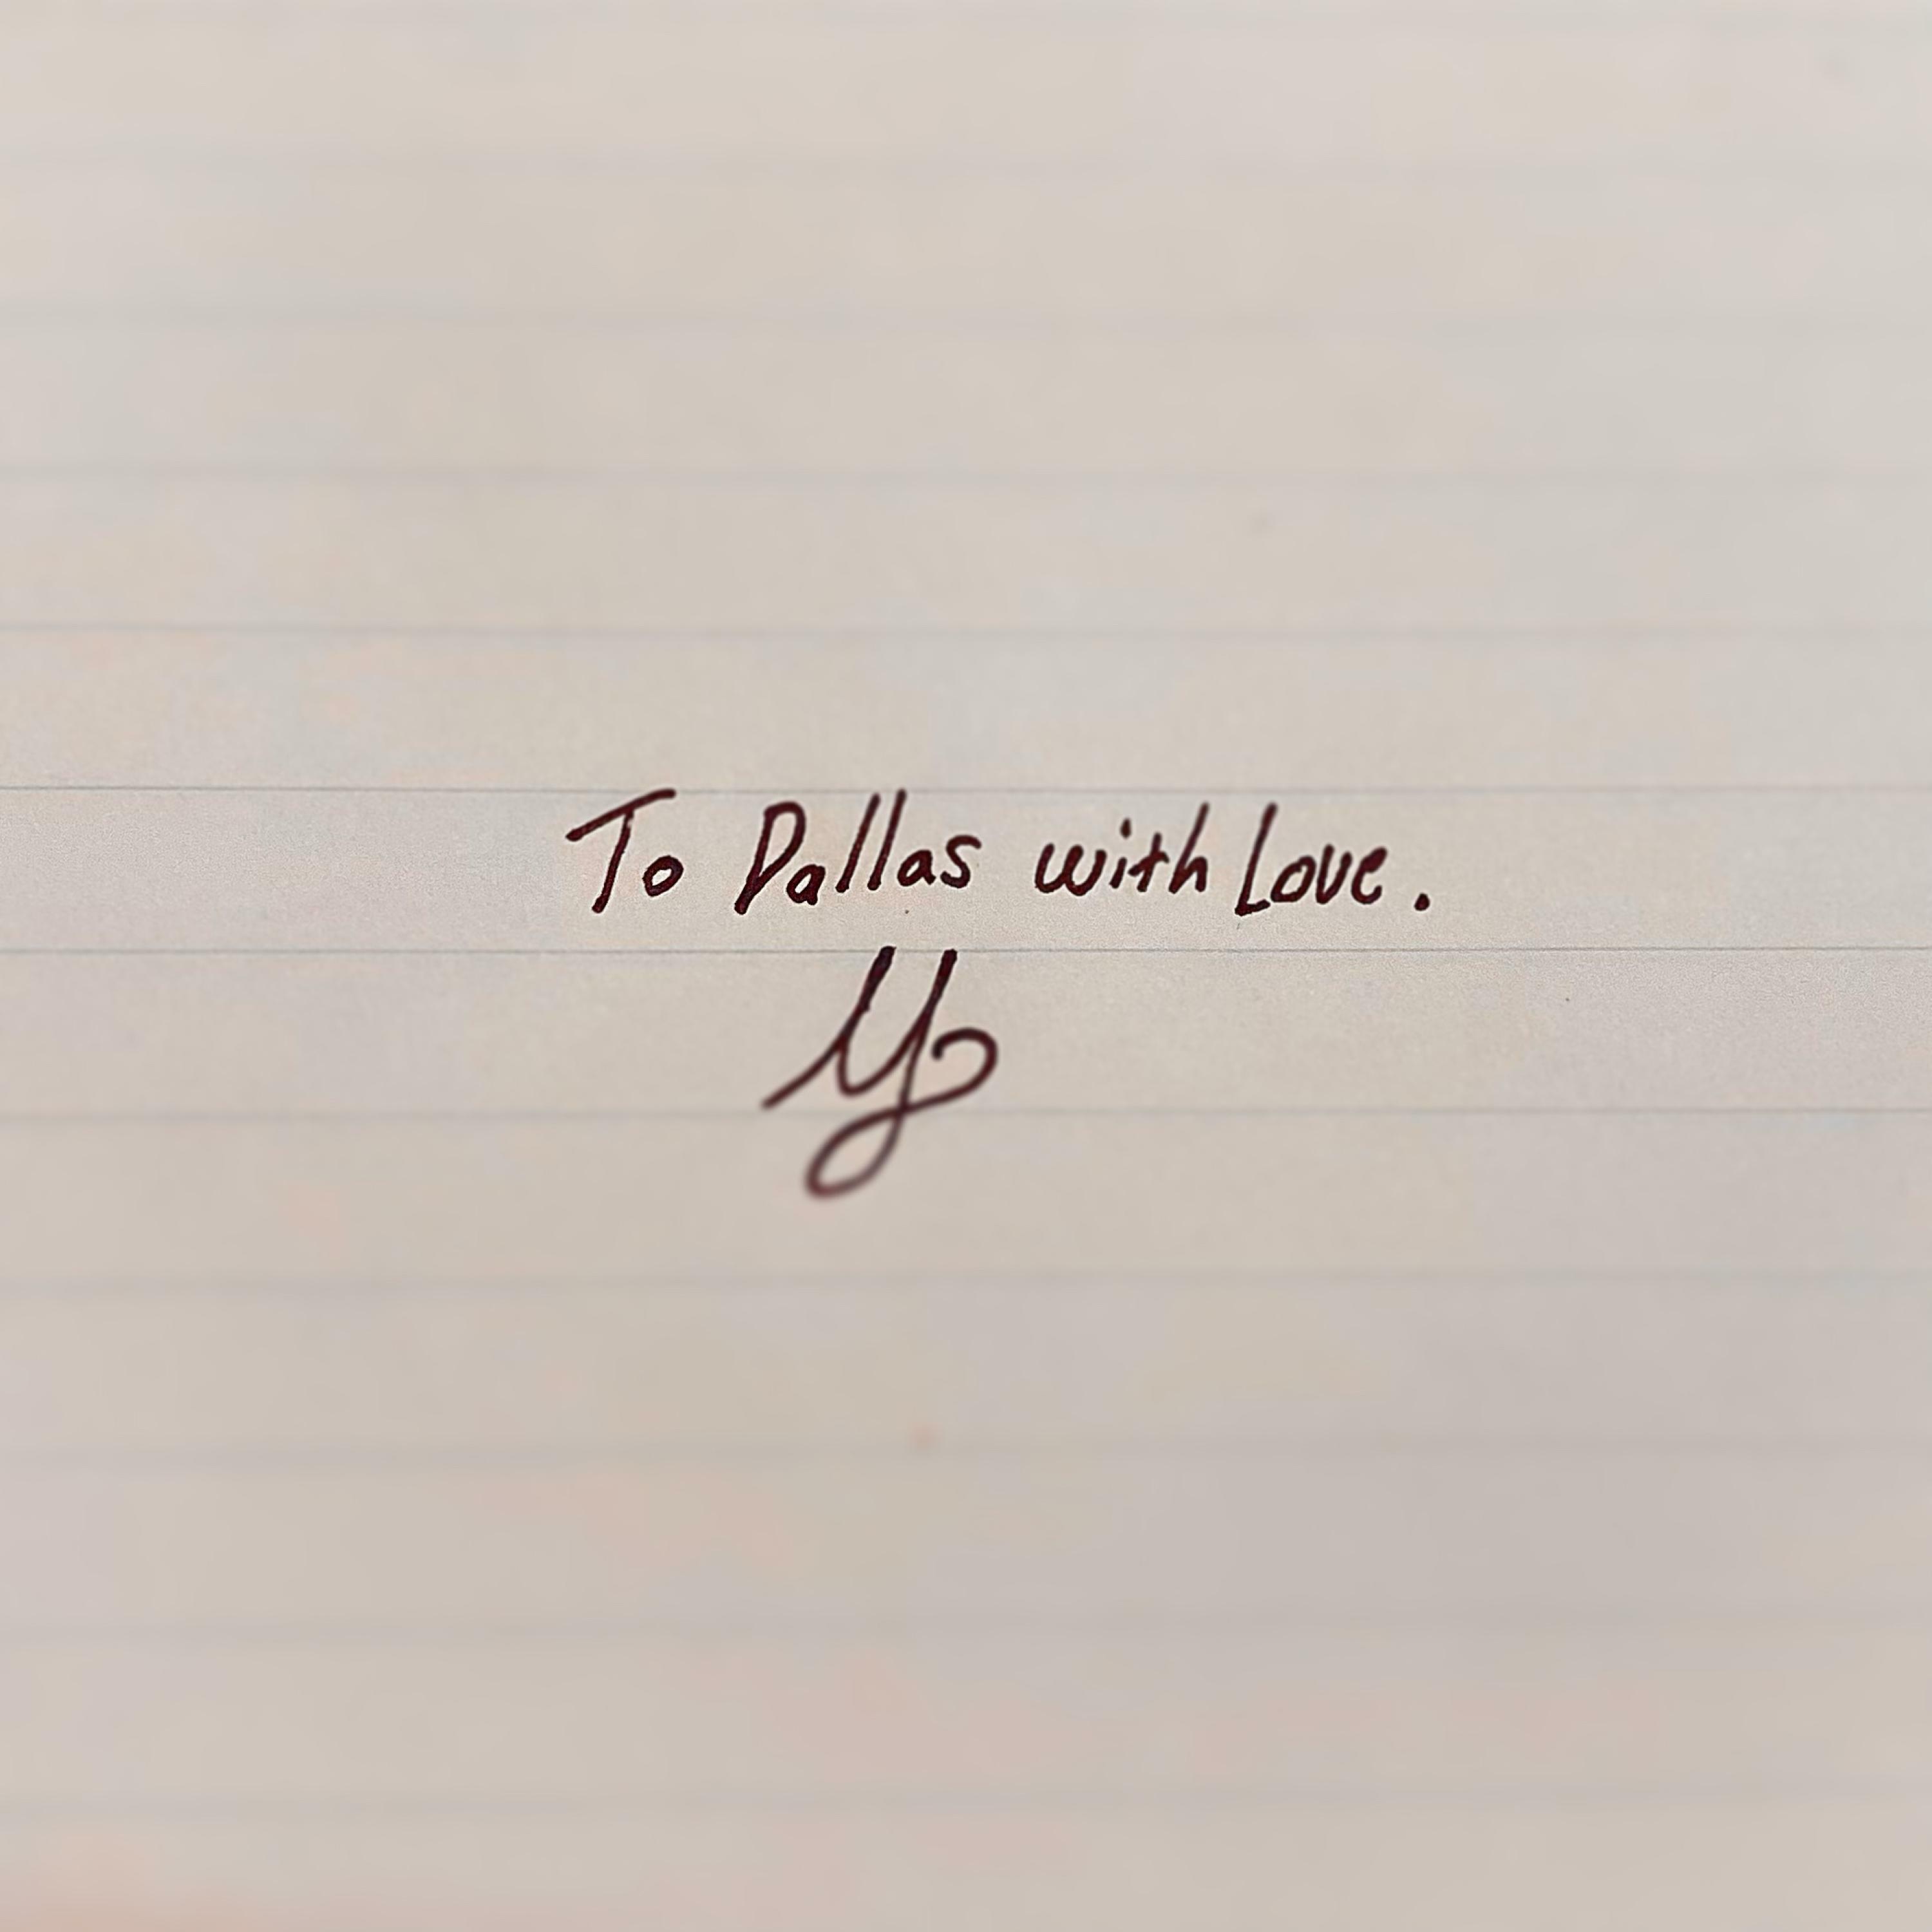 To Dallas with Love.